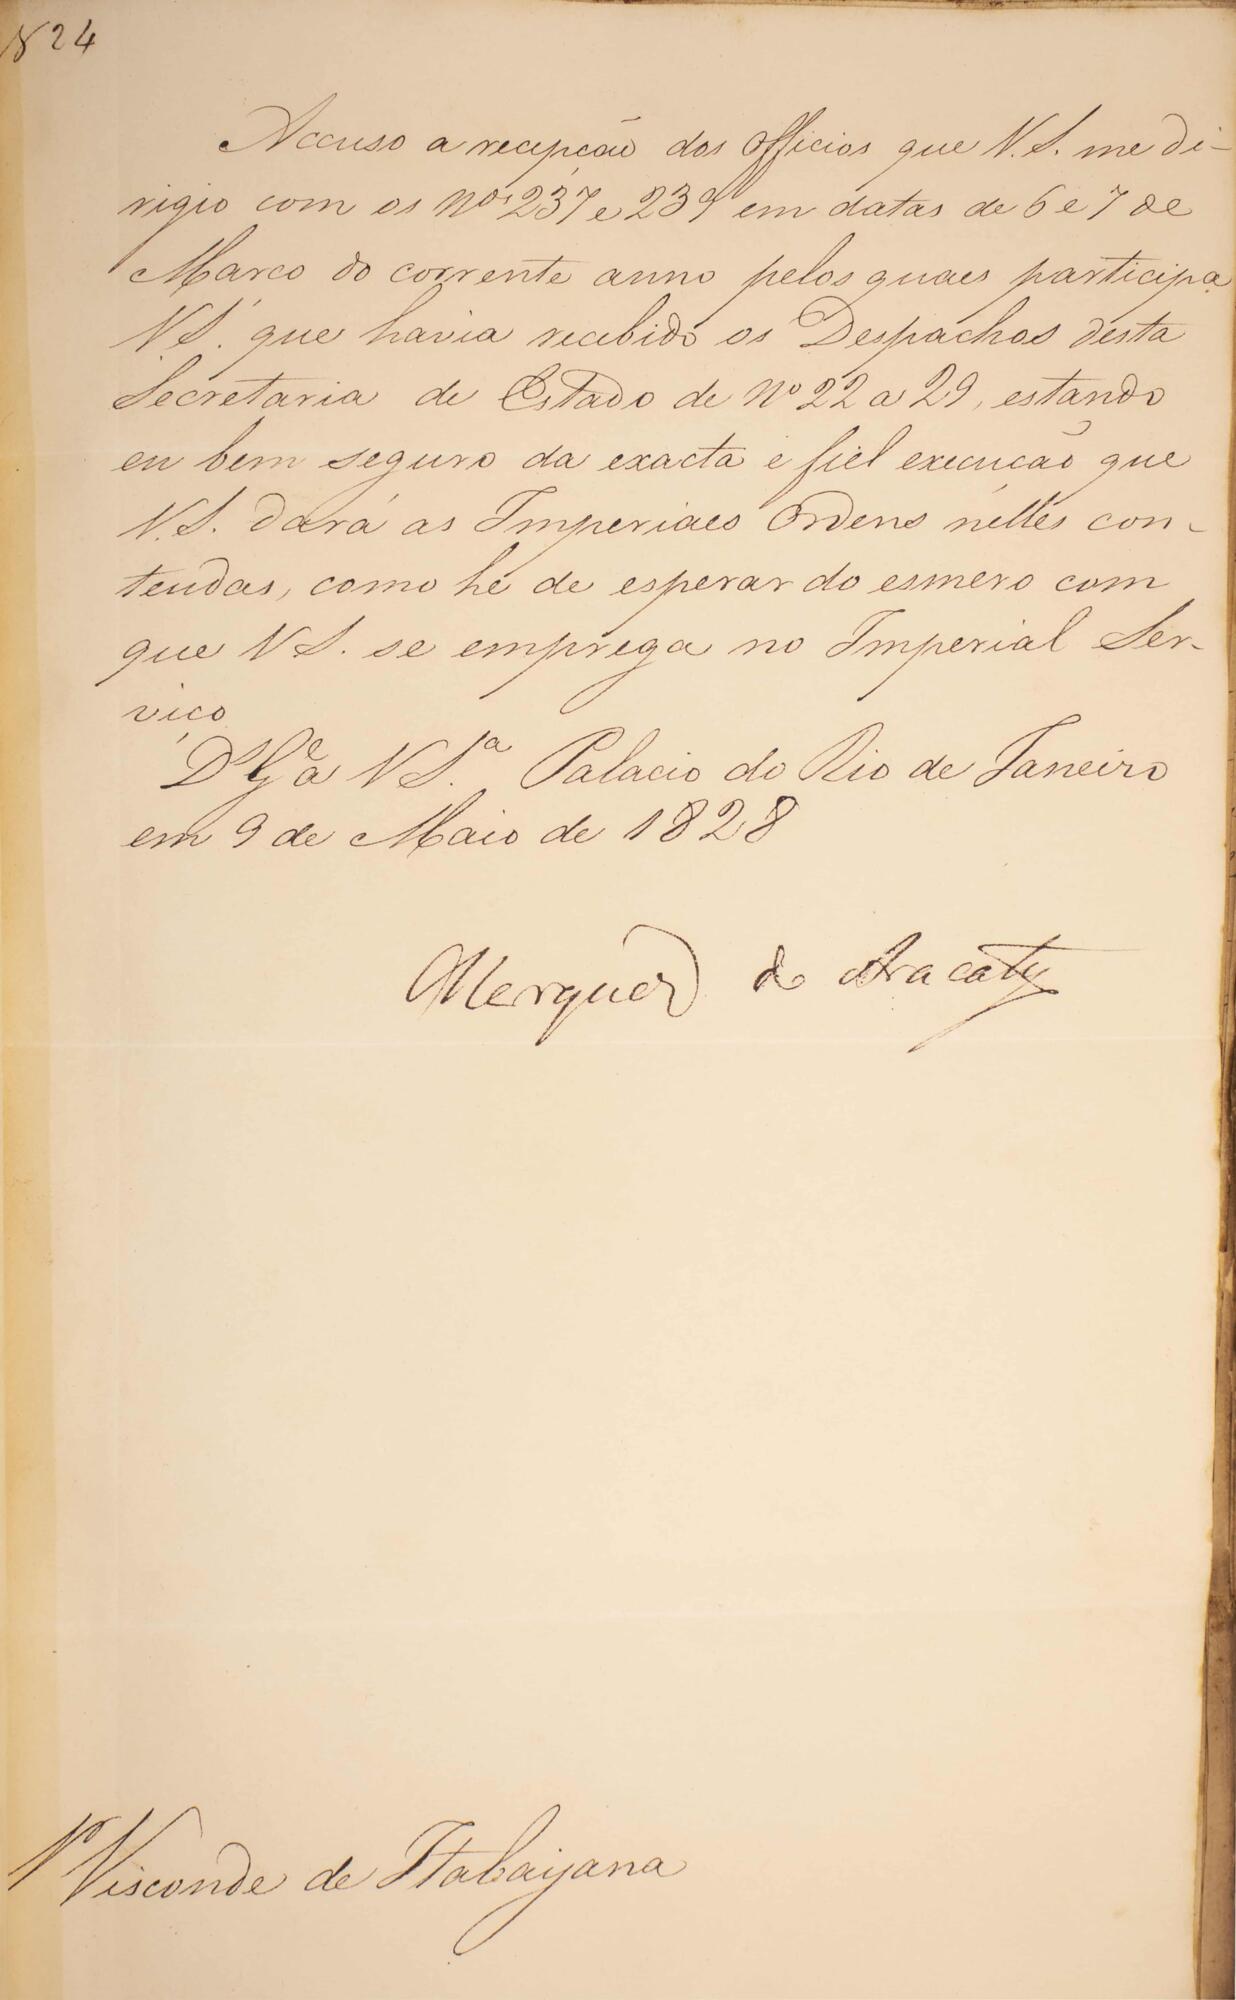 1824
Accuso a recepção dos Officios que V. S. me di-
rigio com os Nos 237 e 239 em datas de 6 e 7 de
Março do corrente anno pelos quaes participa
V. S. que havia recebido os Despachos desta
Secretaria de Estado de No 22 a 29, estando
eu bem seguro da exacta e fiel execução que
V. S. dará as Imperiaes Ordens nelles con-
teudas, como hé de esperar do esmero com
que V S. se emprega no Imperial Ser-
viço
Ds Ge a V S.a Palacio do Rio de Janeiro
em 9 de Maio de 1828
Marquez de Aracaty
Visconde de Itabaijana